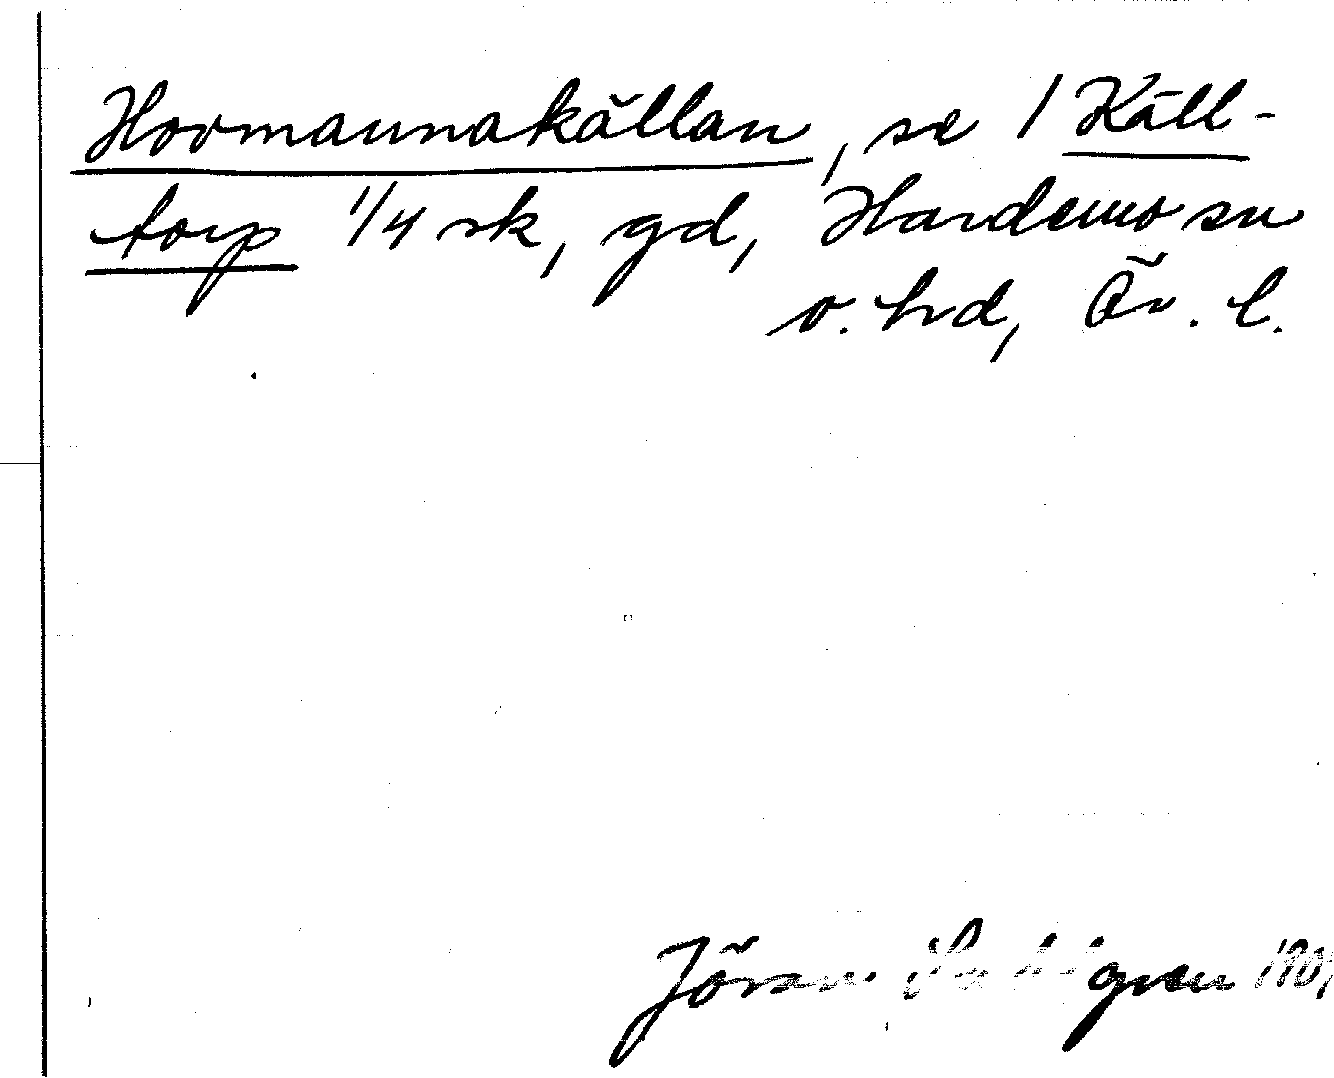 Hovmannakällan, se 1 Käll-
torp 1/4 sk, gd, Hardemo sn
o. hd, Ör. l.
Jöran